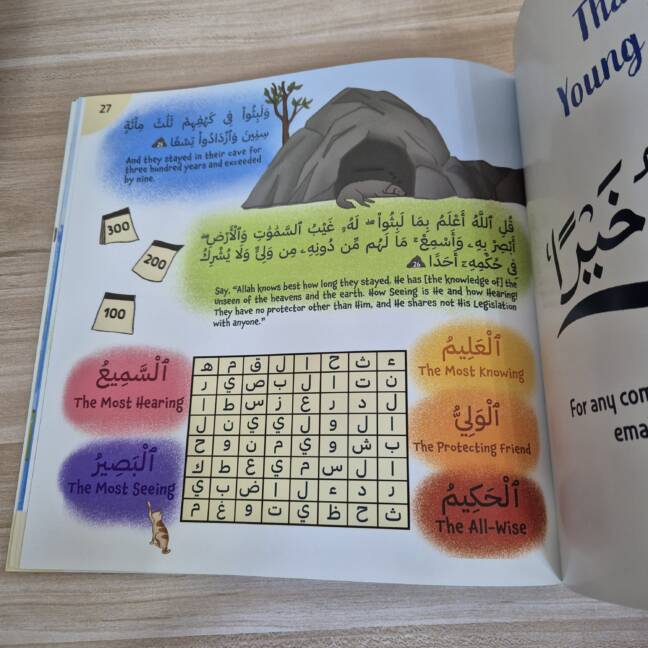 27
وَلَبِثُوا۟ فِى كَهْفِهِمْ ثَلَٰثَ مِا۟ئَةٍ
سِنِينَ وَٱزْدَادُوا۟ تِسْعًا
And they stayed in their cave for
three hundred years and exceeded
by nine.
300
200
100
قُلِ ٱللَّهُ أَعْلَمُ بِمَا لَبِثُوا۟ ۖ لَهُۥ غَيْبُ ٱلسَّمَٰوَٰتِ وَٱلْأَرْضِ ۖ
أَبْصِرْ بِهِۦ وَأَسْمِعْ ۚ مَا لَهُم مِّن دُونِهِۦ مِن وَلِىٍّ وَلَا يُشْرِكُ
فِى حُكْمِهِۦٓ أَحَدًا 26
Say, "Allah knows best how long they stayed. He has [the knowledge of] the
unseen of the heavens and the earth. How Seeing is He and how Hearing!
They have no protector other than Him, and He shares not His Legislation
with anyone."
ٱلْسَّمِيعُ
The Most Hearing
ٱلْبَصِيرُ
The Most Seeing
ء ث ح ا ل ق م ه
ن ت ا ل ب ص ي ر
ل د ر ع ز س ط ا
ا ل و ل ي ي ن ل
ب ش و ي م ن و ح
ا ل س م ي ع ط ك
ر د ء ل ا ض ب ي
ث ح ظ ي ت و غ م
ٱلْعَلِيمُ
The Most Knowing
ٱلْوَلِيُّ
The Protecting Friend
ٱلْحَكِيمُ
The All-Wise
Young
خَيْرًا
For any